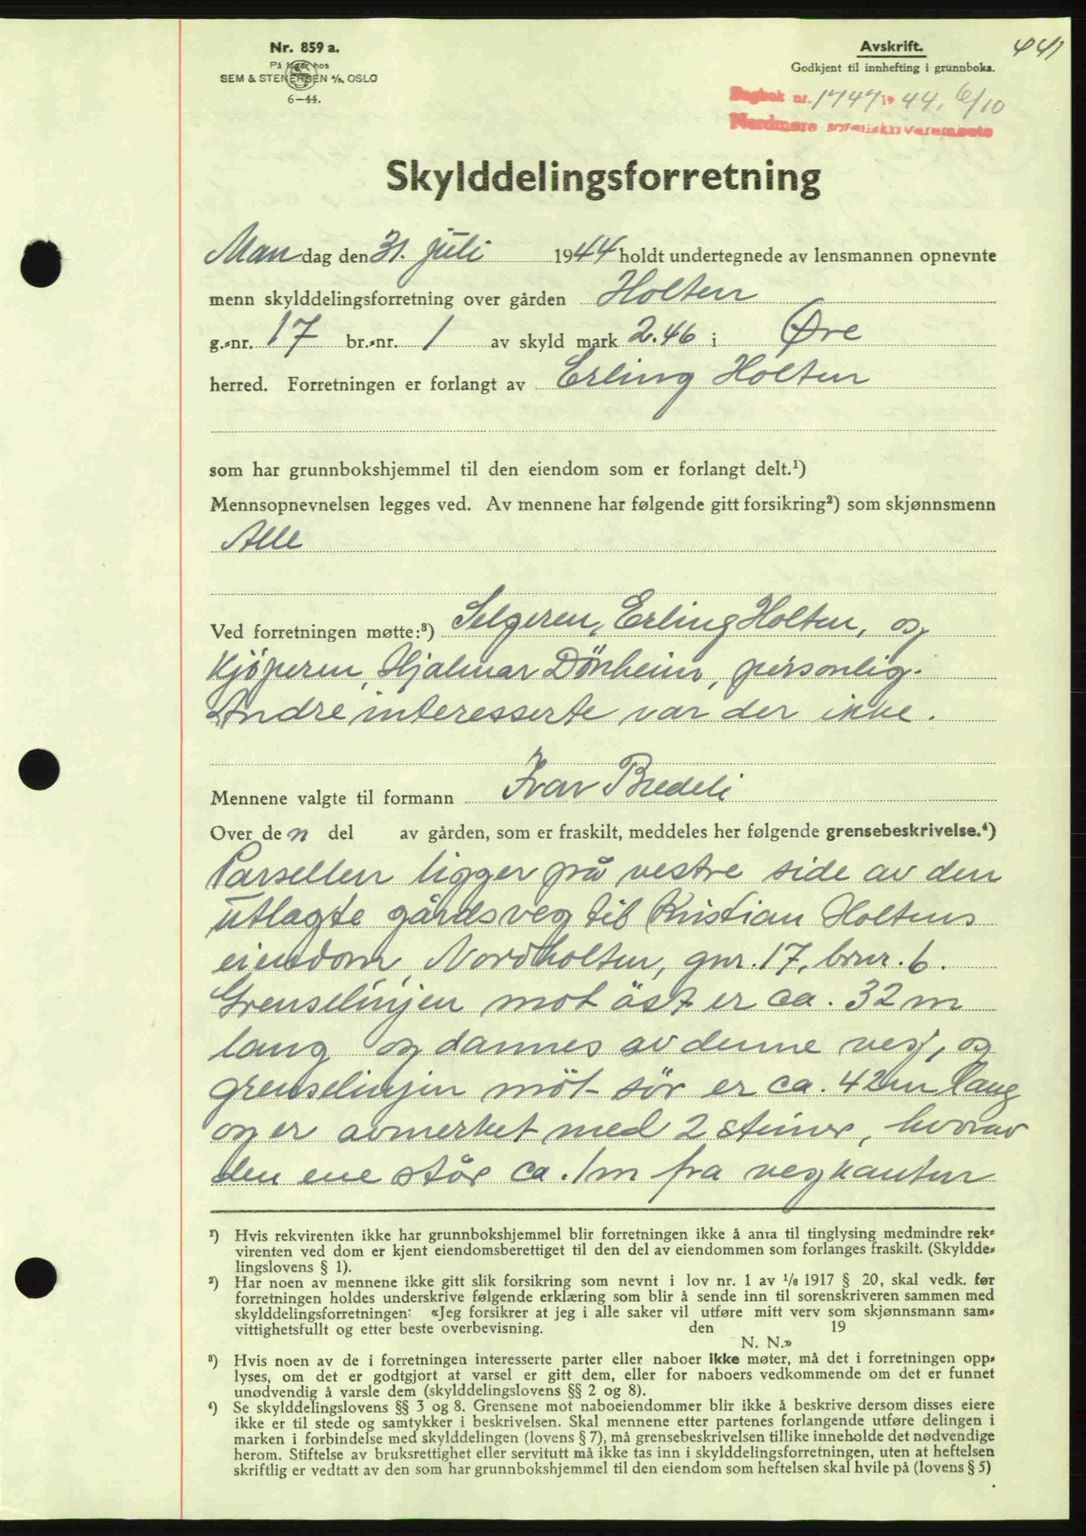 Nr. 859 a.
På lager hos
SEM & STENERSEN A/S, OSLO
6–44.
Avskrift.
Godkjent til innhefting i grunnboka.
441
Dagbok nr. 1747 19 44, 6/10
Nordmøre sorenskriverembete
Skylddelingsforretning
Mandag den 31. juli 1944 holdt undertegnede av lensmannen opnevnte
menn skylddelingsforretning over gården Holten
g.-nr. 17 br.-nr. 1 av skyld mark 2.46 i Øre
herred. Forretningen er forlangt av Erling Holten
som har grunnbokshjemmel til den eiendom som er forlangt delt.¹)
Mennsopnevnelsen legges ved. Av mennene har følgende gitt forsikring²) som skjønnsmenn
Alle
Ved forretningen møtte:³) Selgeren, Erling Holten, og
kjöperen, Hjalmar Dönheim, personlig.
Andre interesserte var der ikke.
Mennene valgte til formann Ivar Bredeli
Over den del av gården, som er fraskilt, meddeles her følgende grensebeskrivelse.⁴)
Parsellen ligger på vestre side av den
utlagte gårdsveg til Kristian Holtens
eiendom, Nordholten, gnr. 17, brnr. 6.
Grenselinjen mot öst er ca. 32 m
lang og dannes av denne veg, og
grenselinjen möt sör er ca. 42m lang
og er avmerket med 2 steiner, hvorav
den ene står ca. 1m fra vegkanten
¹) Hvis rekvirenten ikke har grunnbokshjemmel blir forretningen ikke å anta til tinglysing medmindre rek-
virenten ved dom er kjent eiendomsberettiget til den del av eiendommen som forlanges fraskilt. (Skyldde-
lingslovens § 1).
²) Har noen av mennene ikke gitt slik forsikring som nevnt i lov nr. 1 av 1/6 1917 § 20, skal vedk. før
forretningen holdes underskrive følgende erklæring som blir å sende inn til sorenskriveren sammen med
skylddelingsforretningen: «Jeg forsikrer at jeg i alle saker vil utføre mitt verv som skjønnsmann sam-
vittighetsfullt og etter beste overbevisning. den 19
N. N.»
³) Hvis noen av de i forretningen interesserte parter eller naboer ikke møter, må det i forretningen opp-
lyses, om det er godtgjort at varsel er gitt dem, eller for naboers vedkommende om det er funnet
unødvendig å varsle dem (skylddelingslovens §§ 2 og 8).
⁴) Se skylddelingslovens §§ 3 og 8. Grensene mot naboeiendommer blir ikke å beskrive dersom disses eiere
ikke er til stede og samtykker i beskrivelsen. Skal mennene etter partenes forlangende utføre delingen i
marken i forbindelse med skylddelingen (lovens § 7), må grensebeskrivelsen tillike inneholde det nødvendige
herom. Stiftelse av bruksrettighet eller servitutt må ikke tas inn i skylddelingsforretningen, uten at heftelsen
skriftlig er vedtatt av den som har grunnbokshjemmel til den eiendom som heftelsen skal hvile på (lovens § 5)